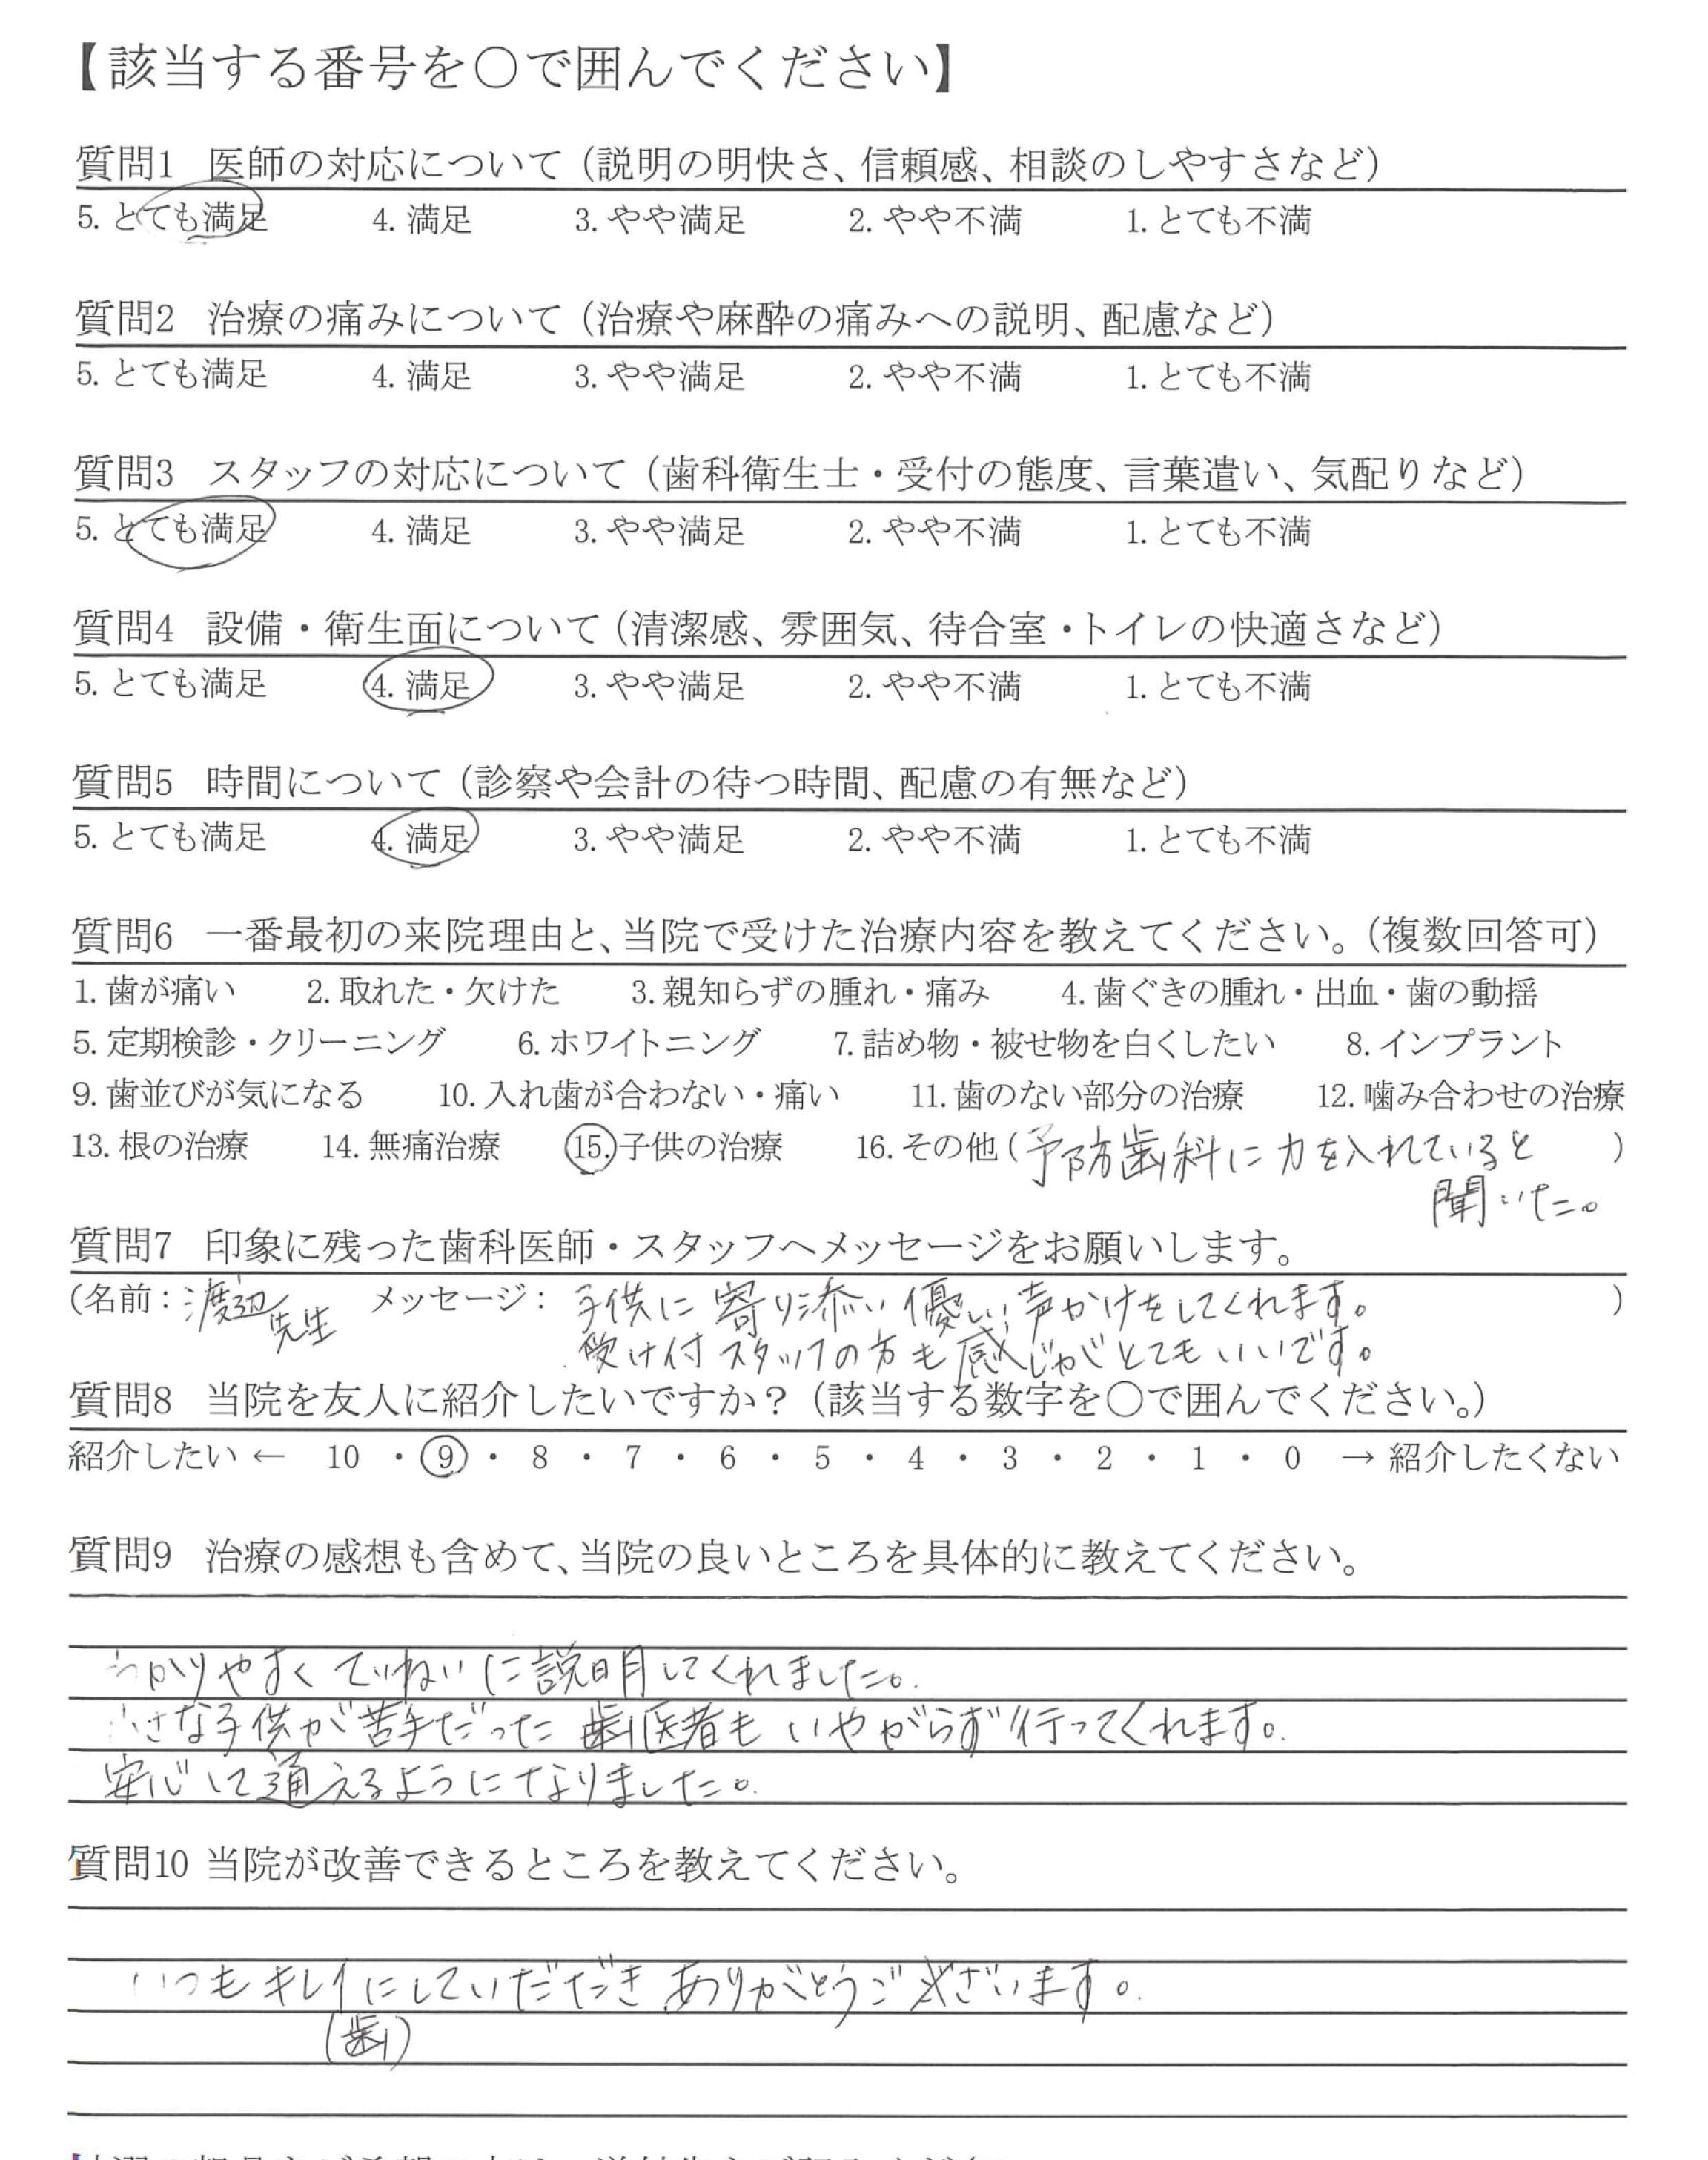 【該当する番号を○で囲んでください】
質問1 医師の対応について（説明の明快さ、信頼感、相談のしやすさなど）
5. とても満足 4. 満足 3. やや満足 2. やや不満 1. とても不満
質問2 治療の痛みについて（治療や麻酔の痛みへの説明、配慮など）
5. とても満足 4. 満足 3. やや満足 2. やや不満 1. とても不満
質問3 スタッフの対応について（歯科衛生士・受付の態度、言葉遣い、気配りなど）
5. とても満足 4. 満足 3. やや満足 2. やや不満 1. とても不満
質問4 設備・衛生面について（清潔感、雰囲気、待合室・トイレの快適さなど）
5. とても満足 4. 満足 3. やや満足 2. やや不満 1. とても不満
質問5 時間について（診察や会計の待つ時間、配慮の有無など）
5. とても満足 4. 満足 3. やや満足 2. やや不満 1. とても不満
質問6 一番最初の来院理由と、当院で受けた治療内容を教えてください。（複数回答可）
1. 歯が痛い 2. 取れた・欠けた 3. 親知らずの腫れ・痛み 4. 歯ぐきの腫れ・出血・歯の動揺
5. 定期検診・クリーニング 6. ホワイトニング 7. 詰め物・被せ物を白くしたい 8. インプラント
9. 歯並びが気になる 10. 入れ歯が合わない・痛い 11. 歯のない部分の治療 12. 噛み合わせの治療
13. 根の治療 14. 無痛治療 15. 子供の治療 16. その他（予防歯科に力を入れていると ）
聞いた。
質問7 印象に残った歯科医師・スタッフへメッセージをお願いします。
（名前：渡辺先生 メッセージ：子供に寄り添い優しい声かけをしてくれます。 ）
受け付スタッフの方も感じがとてもいいです。
質問8 当院を友人に紹介したいですか？（該当する数字を○で囲んでください。）
紹介したい ← 10 ・ 9 ・ 8 ・ 7 ・ 6 ・ 5 ・ 4 ・ 3 ・ 2 ・ 1 ・ 0 → 紹介したくない
質問9 治療の感想も含めて、当院の良いところを具体的に教えてください。
わかりやすくていねいに説明してくれました。
小さな子供が苦手だった歯医者もいやがらず行ってくれます。
安心して通えるようになりました。
質問10 当院が改善できるところを教えてください。
いつもキレイにしていただだきありがとうございます。
（歯）